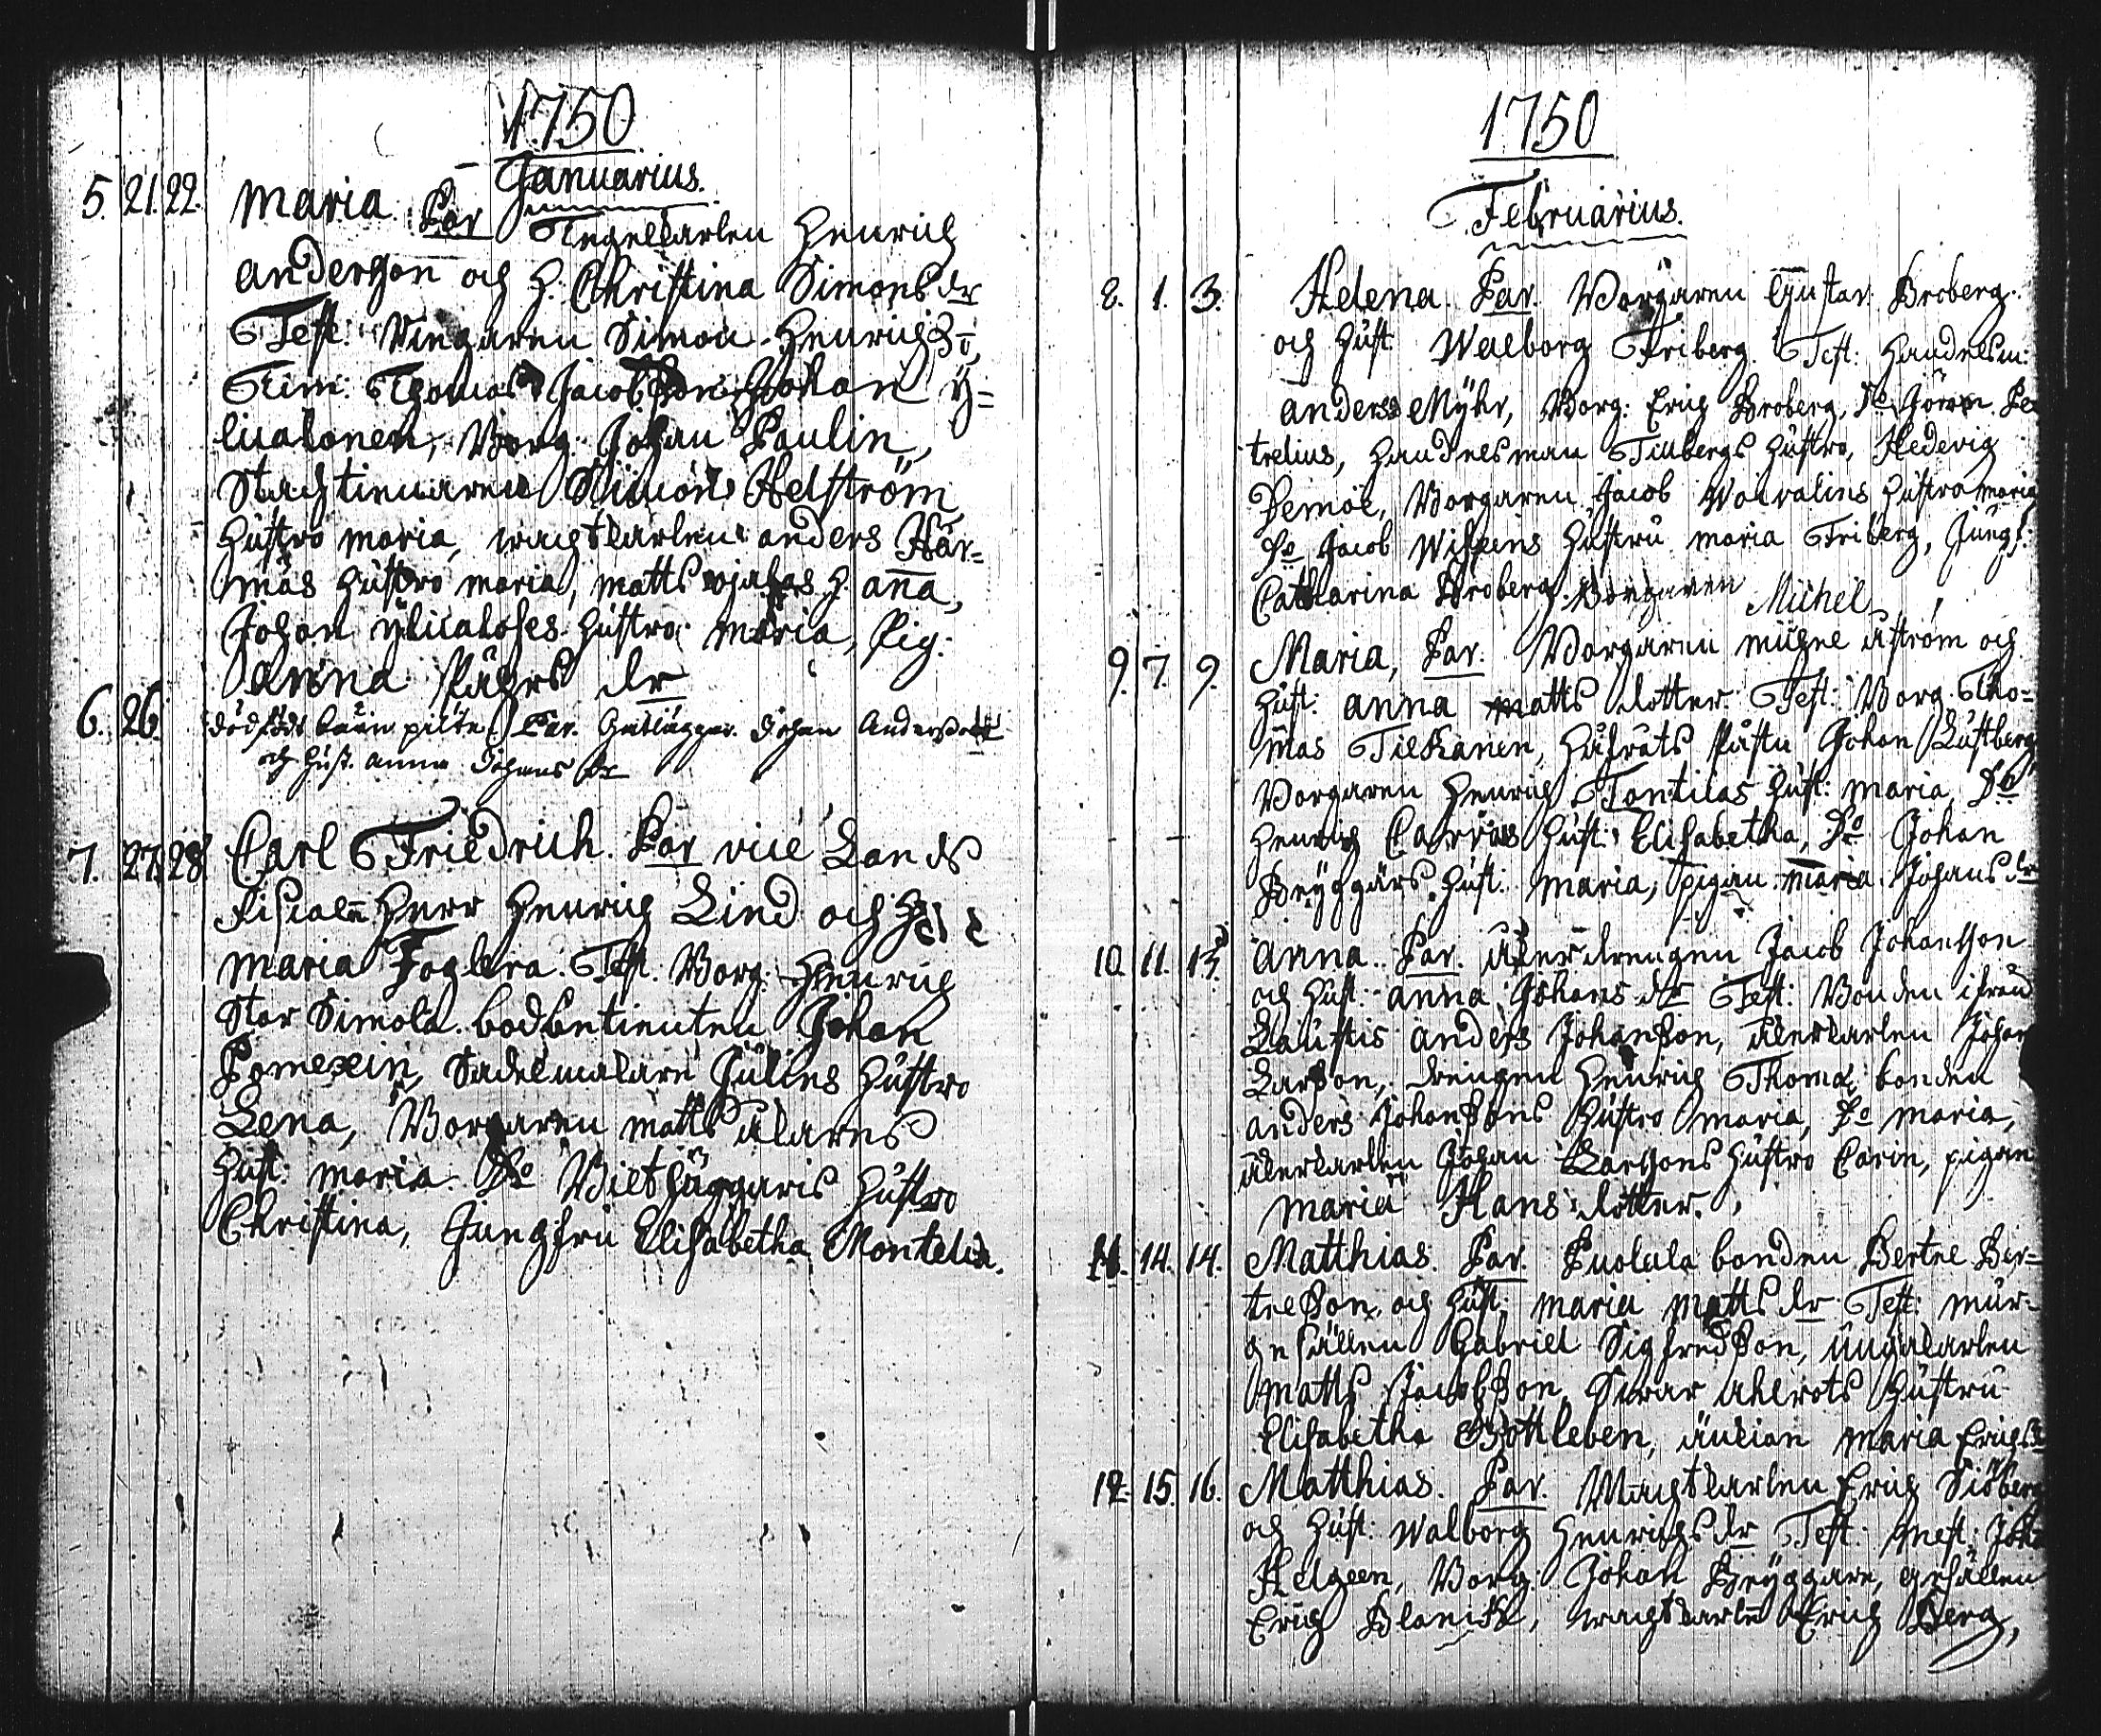 1750
Januarius.
5. 21. 22. Maria. Par Tegelkarlen Henrich
Andersson och H. Christina Simons dr
Test: Simon Henrichs
Tim: Thomas Jacobsson, Johan Y=
licalonen, Borg: Johan Paulin,
Stadstienaren Simons Helström
Hustro Maria, wachtkarlens Anders Här=
mäs Hustro Maria, Matts H. Anna,
Johan Ylicaloses Hustro Maria, Pig:
Anna Påhrs dr
6. 26. dödfödt barn pilte. Par. Johan Andersson
och Hust. Anna Johans dr
7. 27. 28. Carl Friedrich. Par vice Lands
Fiscalen Herr Henrich Lind och H
Maria Foglera. Test. Borg: Henrich
Stor Simola. bodbetienten Johan
Pomexein, Sadelmakare Julins Hustro
Lena, Borgaren Matts
Hust: Maria. Do Hustro
Christina, Jungfru Elisabetha Montelia.
1750
Februarius.
8. 1. 3. Helena. Par. Borgaren Gustav Broberg.
och Hust Walborg Friberg. Test: Handelsm:
Anders Myhr, Borg: Erich Broberg, Do Jöran Pe
trelius, Handelsman Tillbergs Hustro, Hedevig
Borgaren Jacob Walvalins Hustro Maria
Do Jacob Hustru Maria Friberg, Jungf:
Catharina Broberg. Borgaren Michel
9. 7. 9. Maria, Par. Borgaren Åström och
Hust: Anna Matts dotter. Test: Borg. Tho=
mas Tilkanen, Johan Lustberg,
Borgaren Henrich Tontilas Hust: Maria, Do
Henrich Hust: Elisabetha, Do Johan
Bryggars Hust: Maria, pigan Maria Johans dr
10. 11. 13. Anna. Par. Åkerdrengen Jacob Johansson
och Hust: Anna Johans dr Test: Bonden ifrån
Anders Johansson, åkerkarlen Johan
Larsson, drengen Henrich Thomas, bonden
Anders Johanssons Hustro Maria, Do Maria,
åkerkarlen Johan Larssons Hustro Carin, pigan
Maria Hans dotter.
11. 14. 14. Matthias. Par. Puolala bonden Bertel Ber=
telsson, och Hust: Maria Matts dr Test: mur=
gesällen Gabriel Sigfredsson, ungakarlen
Matts Jacobsson, Hustru
Elisabetha Gottleben, änkian Maria Erichs
12. 15. 16. Matthias. Par. Wachtkarlen Erich
och Hust: Walborg Henrichs dr Test: Mest:
Borg: Johan Bryggare, gesällen
Erich wachtkarln Erich Berg,